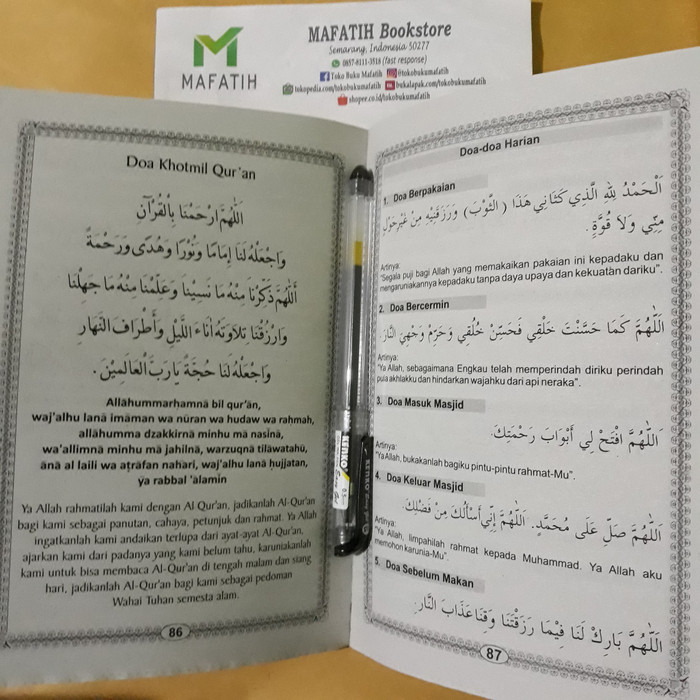 MAFATIH
MAFATIH Bookstore
Semarang, Indonesia 50277
0857-8111-3518 (fast response)
Toko Buku Mafatih @tokobukumafatih
tokopedia.com/tokobukumafatih bukalapak.com/tokobukumafatih
shopee.co.id/tokobukumafatih
Doa Khotmil Qur'an
اَللّٰهُمَّ ارْحَمْنَا بِالْقُرْآنِ
وَاجْعَلْهُ لَنَا إِمَامًا وَنُوْرًا وَهُدًى وَرَحْمَةً
اَللّٰهُمَّ ذَكِّرْنَا مِنْهُ مَا نَسِيْنَا وَعَلِّمْنَا مِنْهُ مَا جَهِلْنَا
وَارْزُقْنَا تِلَاوَتَهُ اٰنَاءَ اللَّيْلِ وَأَطْرَافَ النَّهَارِ
وَاجْعَلْهُ لَنَا حُجَّةً يَارَبَّ الْعَالَمِيْنَ.
Allāhummarḥamnā bil qur'ān,
waj'alhu lanā imāman wa nūran wa hudaw wa raḥmah,
allāhumma dzakkirnā minhu mā nasīnā,
wa'allimnā minhu mā jahilnā, warzuqnā tilāwatahū,
ānā al laili wa aṭrāfan nahāri, waj'alhu lanā ḥujjatan,
ya rabbal 'alamin
Ya Allah rahmatilah kami dengan Al Qur'an, jadikanlah Al-Qur'an
bagi kami sebagai panutan, cahaya, petunjuk dan rahmat. Ya Allah
ingatkanlah kami andaikan terlupa dari ayat-ayat Al-Qur'an,
ajarkan kami dari padanya yang kami belum tahu, karuniakanlah
kami untuk bisa membaca Al-Qur'an di tengah malam dan siang
hari, jadikanlah Al-Qur'an bagi kami sebagai pedoman
Wahai Tuhan semesta alam.
86
KENKO
Doa-doa Harian
1. Doa Berpakaian
اَلْحَمْدُ لِلّٰهِ الَّذِي كَسَانِي هَذَا (الثَّوْبَ) وَرَزَقَنِيْهِ مِنْ غَيْرِ حَوْلٍ
مِنِّي وَلَا قُوَّةٍ.
Artinya:
"Segala puji bagi Allah yang memakaikan pakaian ini kepadaku dan
mengaruniakannya kepadaku tanpa daya upaya dan kekuatan dariku".
2. Doa Bercermin
اَللّٰهُمَّ كَمَا حَسَّنْتَ خَلْقِي فَحَسِّنْ خُلُقِي وَحَرِّمْ وَجْهِي النَّارَ.
Artinya:
"Ya Allah, sebagaimana Engkau telah memperindah diriku perindah
pula akhlakku dan hindarkan wajahku dari api neraka".
3. Doa Masuk Masjid
اَللّٰهُمَّ افْتَحْ لِي أَبْوَابَ رَحْمَتِكَ.
Artinya:
"Ya Allah, bukakanlah bagiku pintu-pintu rahmat-Mu".
4. Doa Keluar Masjid
اَللّٰهُمَّ صَلِّ عَلَى مُحَمَّدٍ. اَللّٰهُمَّ إِنِّي أَسْأَلُكَ مِنْ فَضْلِكَ.
Artinya:
"Ya Allah, limpahilah rahmat kepada Muhammad. Ya Allah aku
memohon karunia-Mu".
5. Doa Sebelum Makan
اَللّٰهُمَّ بَارِكْ لَنَا فِيْمَا رَزَقْتَنَا وَقِنَا عَذَابَ النَّارِ.
87